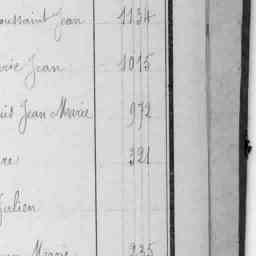 oussaint Jean 1134
rie Jean 1015
uis Jean Marie 972
re 321
Julien
Marie 235